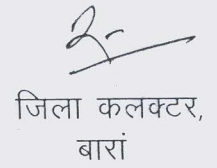 जिला कलक्टर,
बारां